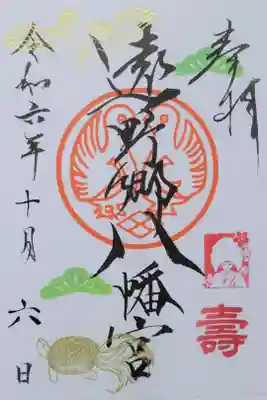 奉拝
遠野郷八幡宮
令和六年十月六日
壽